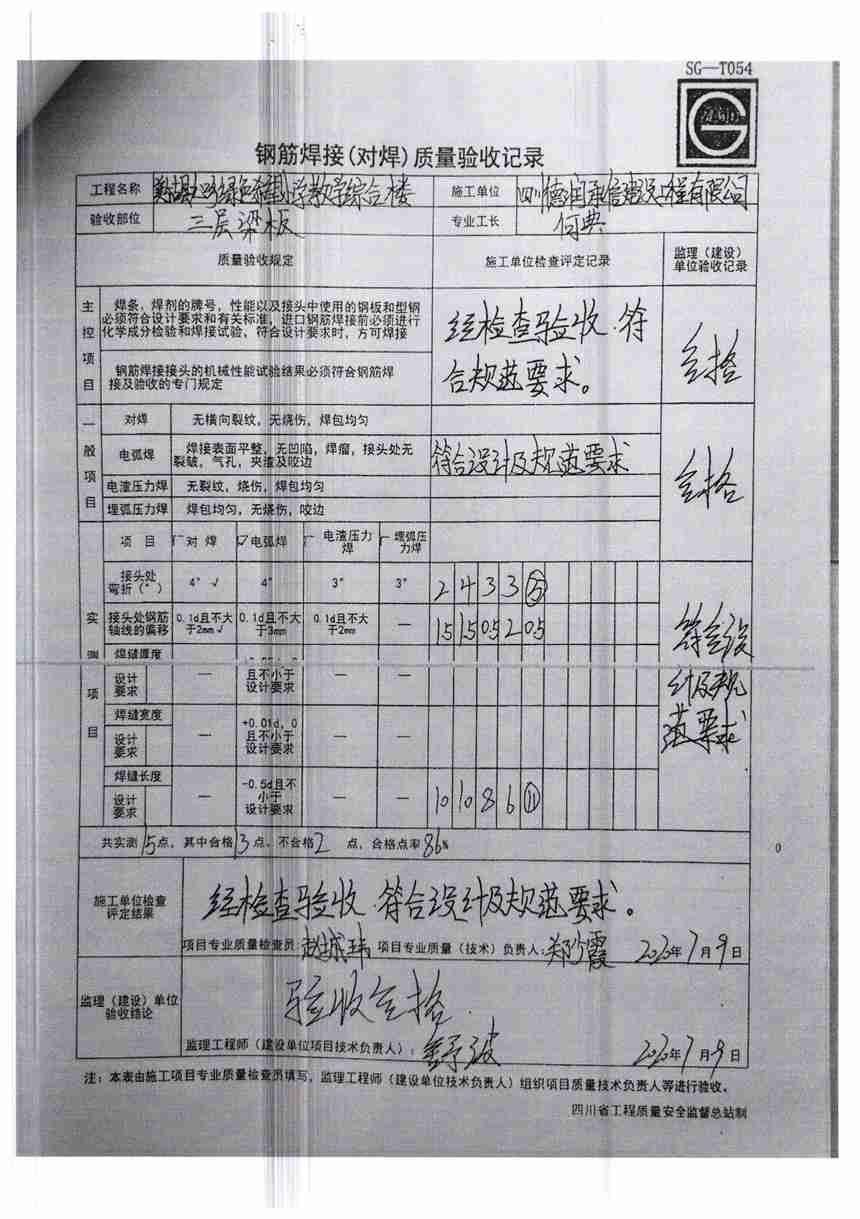 SG—T054
钢筋焊接(对焊)质量验收记录
工程名称 小学教学综合楼 施工单位 四川德润承信建设工程有限公司
验收部位 三层梁板 专业工长 何典
质量验收规定 施工单位检查评定记录 监理（建设）单位验收记录
主控项目
焊条，焊剂的牌号，性能以及接头中使用的钢板和型钢
必须符合设计要求和有关标准，进口钢筋焊接前必须进行
化学成分检验和焊接试验，符合设计要求时，方可焊接
经检查验收.符
合规范要求。
合格
钢筋焊接接头的机械性能试验结果必须符合钢筋焊
接及验收的专门规定
一般项目
对焊 无横向裂纹，无烧伤，焊包均匀
电弧焊 焊接表面平整，无凹陷，焊瘤，接头处无
裂皱，气孔，夹渣及咬边
符合设计及规范要求
合格
电渣压力焊 无裂纹，烧伤，焊包均匀
埋弧压力焊 焊包均匀，无烧伤，咬边
实测项目
项 目 对 焊 ✓电弧焊 电渣压力焊 埋弧压力焊
接头处弯折(°) 4° √ 4° 3° 3° 2 4 3 3 ⑤
接头处钢筋轴线的偏移 0.1d且不大于2mm√ 0.1d且不大于3mm 0.1d且不大于2mm — 15 15 05 2 05
焊缝厚度
设计要求 — 且不小于设计要求 — —
焊缝宽度
设计要求 — +0.01d, 0且不小于设计要求 — —
焊缝长度
设计要求 — -0.5d且不小于设计要求 — — 10 10 8 6 ⑪
符合设
计及规
范要求
共实测15点，其中合格13点、不合格2 点，合格点率86%
0
施工单位检查评定结果
经检查验收.符合设计及规范要求。
项目专业质量检查员: 项目专业质量（技术）负责人:郑少霞 2020年7月9日
监理（建设）单位验收结论
验收合格.
监理工程师（建设单位项目技术负责人）: 2020年7月9日
注：本表由施工项目专业质量检查员填写，监理工程师（建设单位技术负责人）组织项目质量技术负责人等进行验收。
四川省工程质量安全监督总站制